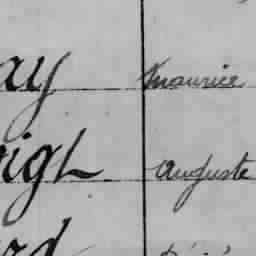 ay maurice
igh auguste
rd